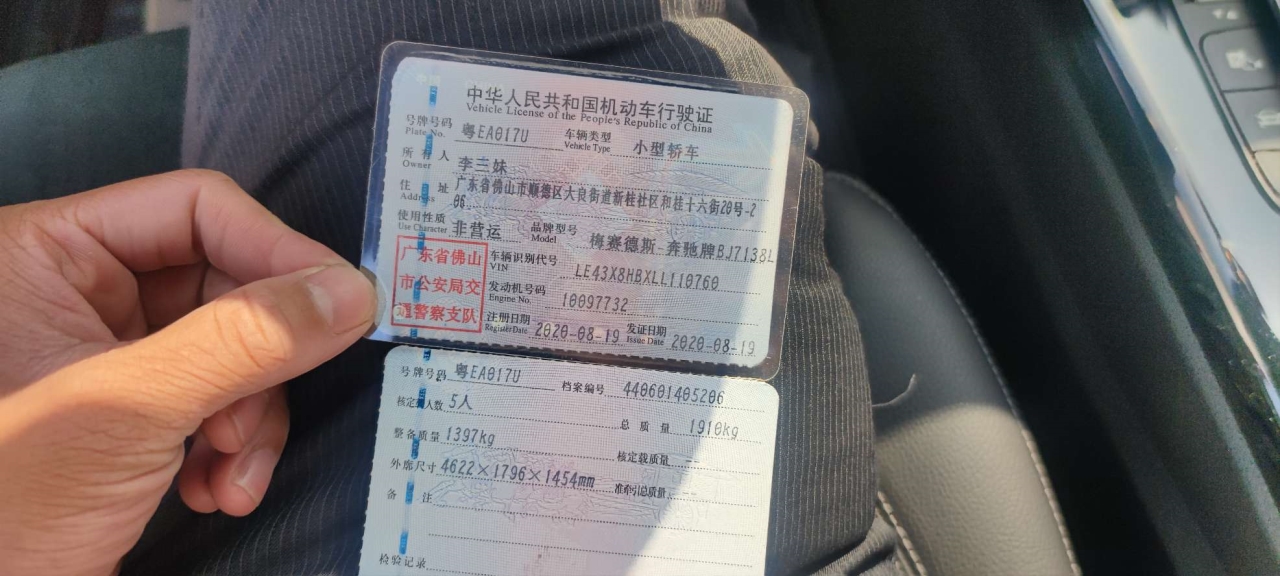 中华人民共和国机动车行驶证
Vehicle License of the People's Republic of China
号牌号码 粤EA017U 车辆类型 小型轿车
Plate No. Vehicle Type
所有人 李三妹
Owner
住址 广东省佛山市顺德区大良街道新桂社区和桂十六街20号-2
Address 06
使用性质 非营运 品牌型号 梅赛德斯-奔驰牌BJ7138L
Use Character Model
广东省佛山
市公安局交
通警察支队
车辆识别代号 LE43X8HBXLL110760
VIN
发动机号码 10097732
Engine No.
注册日期 2020-08-19 发证日期 2020-08-19
Register Date Issue Date
号牌号码 粤EA017U 档案编号 440601405206
核定载人数 5人 总质量 1910kg
整备质量 1397kg 核定载质量 --
外廓尺寸 4622×1796×1454mm 准牵引总质量 --
备注
检验记录